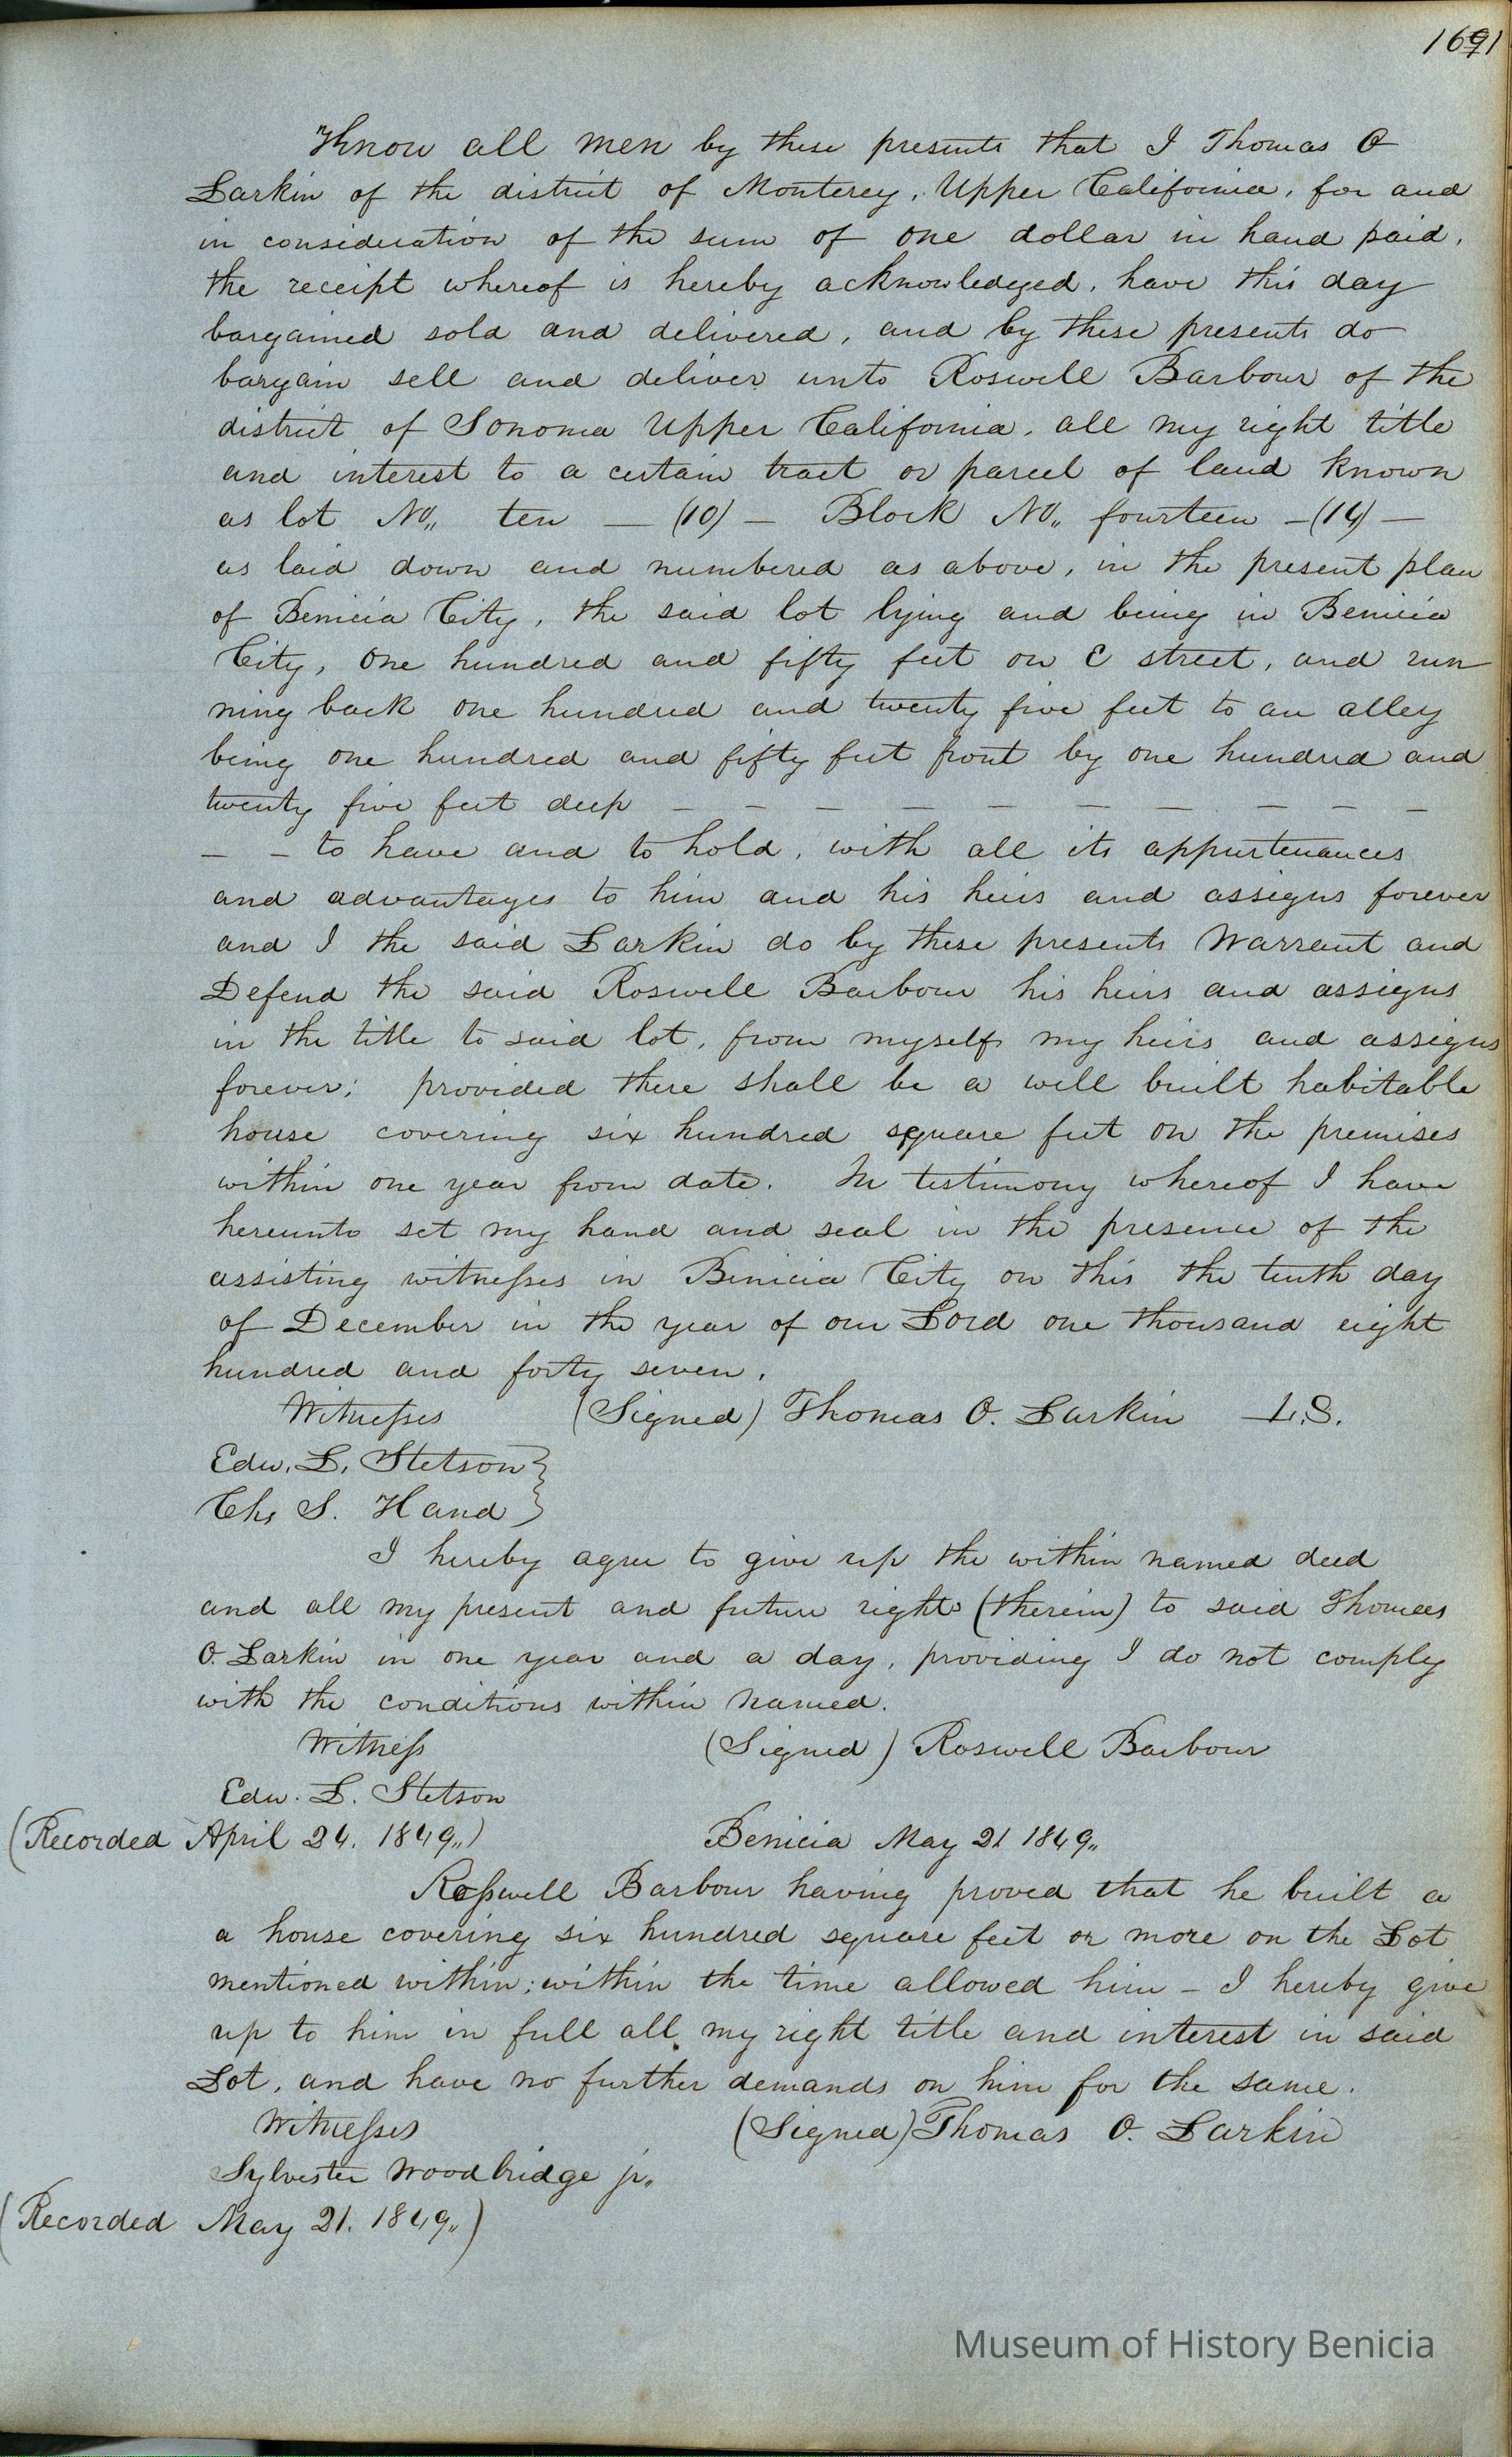 1691
Know all men by these presents that I Thomas O
Larkin of the district of Monterey, Upper California, for and
in consideration of the sum of one dollar in hand paid,
the receipt whereof is hereby acknowledged, have this day
bargained sold and delivered, and by these presents do
bargain sell and deliver unto Roswell Barbour of the
district of Sonoma Upper California, all my right title
and interest to a certain tract or parcel of land known
as lot No,, ten — (10) — Block No,, fourteen — (14) —
as laid down and numbered as above, in the present plan
of Benicia City, the said lot lying and being in Benicia
City, one hundred and fifty feet on C street, and run
ning back one hundred and twenty five feet to an alley
being one hundred and fifty feet front by one hundred and
twenty five feet deep — — — — — — — — — —
— — to have and to hold, with all its appurtenances
and advantages to him and his heirs and assigns forever
and I the said Larkin do by these presents Warrant and
Defend the said Roswell Barbour his heirs and assigns
in the title to said lot, from myself my heirs and assigns
forever; provided there shall be a well built habitable
house covering six hundred square feet on the premises
within one year from date. In testimony whereof I have
hereunto set my hand and seal in the presence of the
assisting witnesses in Benicia City on this the tenth day
of December in the year of our Lord one thousand eight
hundred and forty seven.
Witnesses (Signed) Thomas O. Larkin L.S.
Edw. L. Stetson }
Chs S. Hand }
I hereby agree to give up the within named deed
and all my present and future rights (therein) to said Thomas
O. Larkin in one year and a day, providing I do not comply
with the conditions within named.
Witness (Signed) Roswell Barbour
Edw. L. Stetson
(Recorded April 24. 1849,,) Benicia May 21 1849,,
Rosswell Barbour having proved that he built a
a house covering six hundred square feet or more on the Lot
mentioned within; within the time allowed him – I hereby give
up to him in full all my right title and interest in said
Lot, and have no further demands on him for the same.
Witnesses (Signed) Thomas O. Larkin
Sylvester Woodbridge jr,,
(Recorded May 21. 1849,,)
Museum of History Benicia